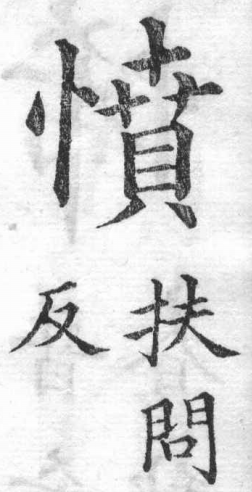 憤
扶問
反